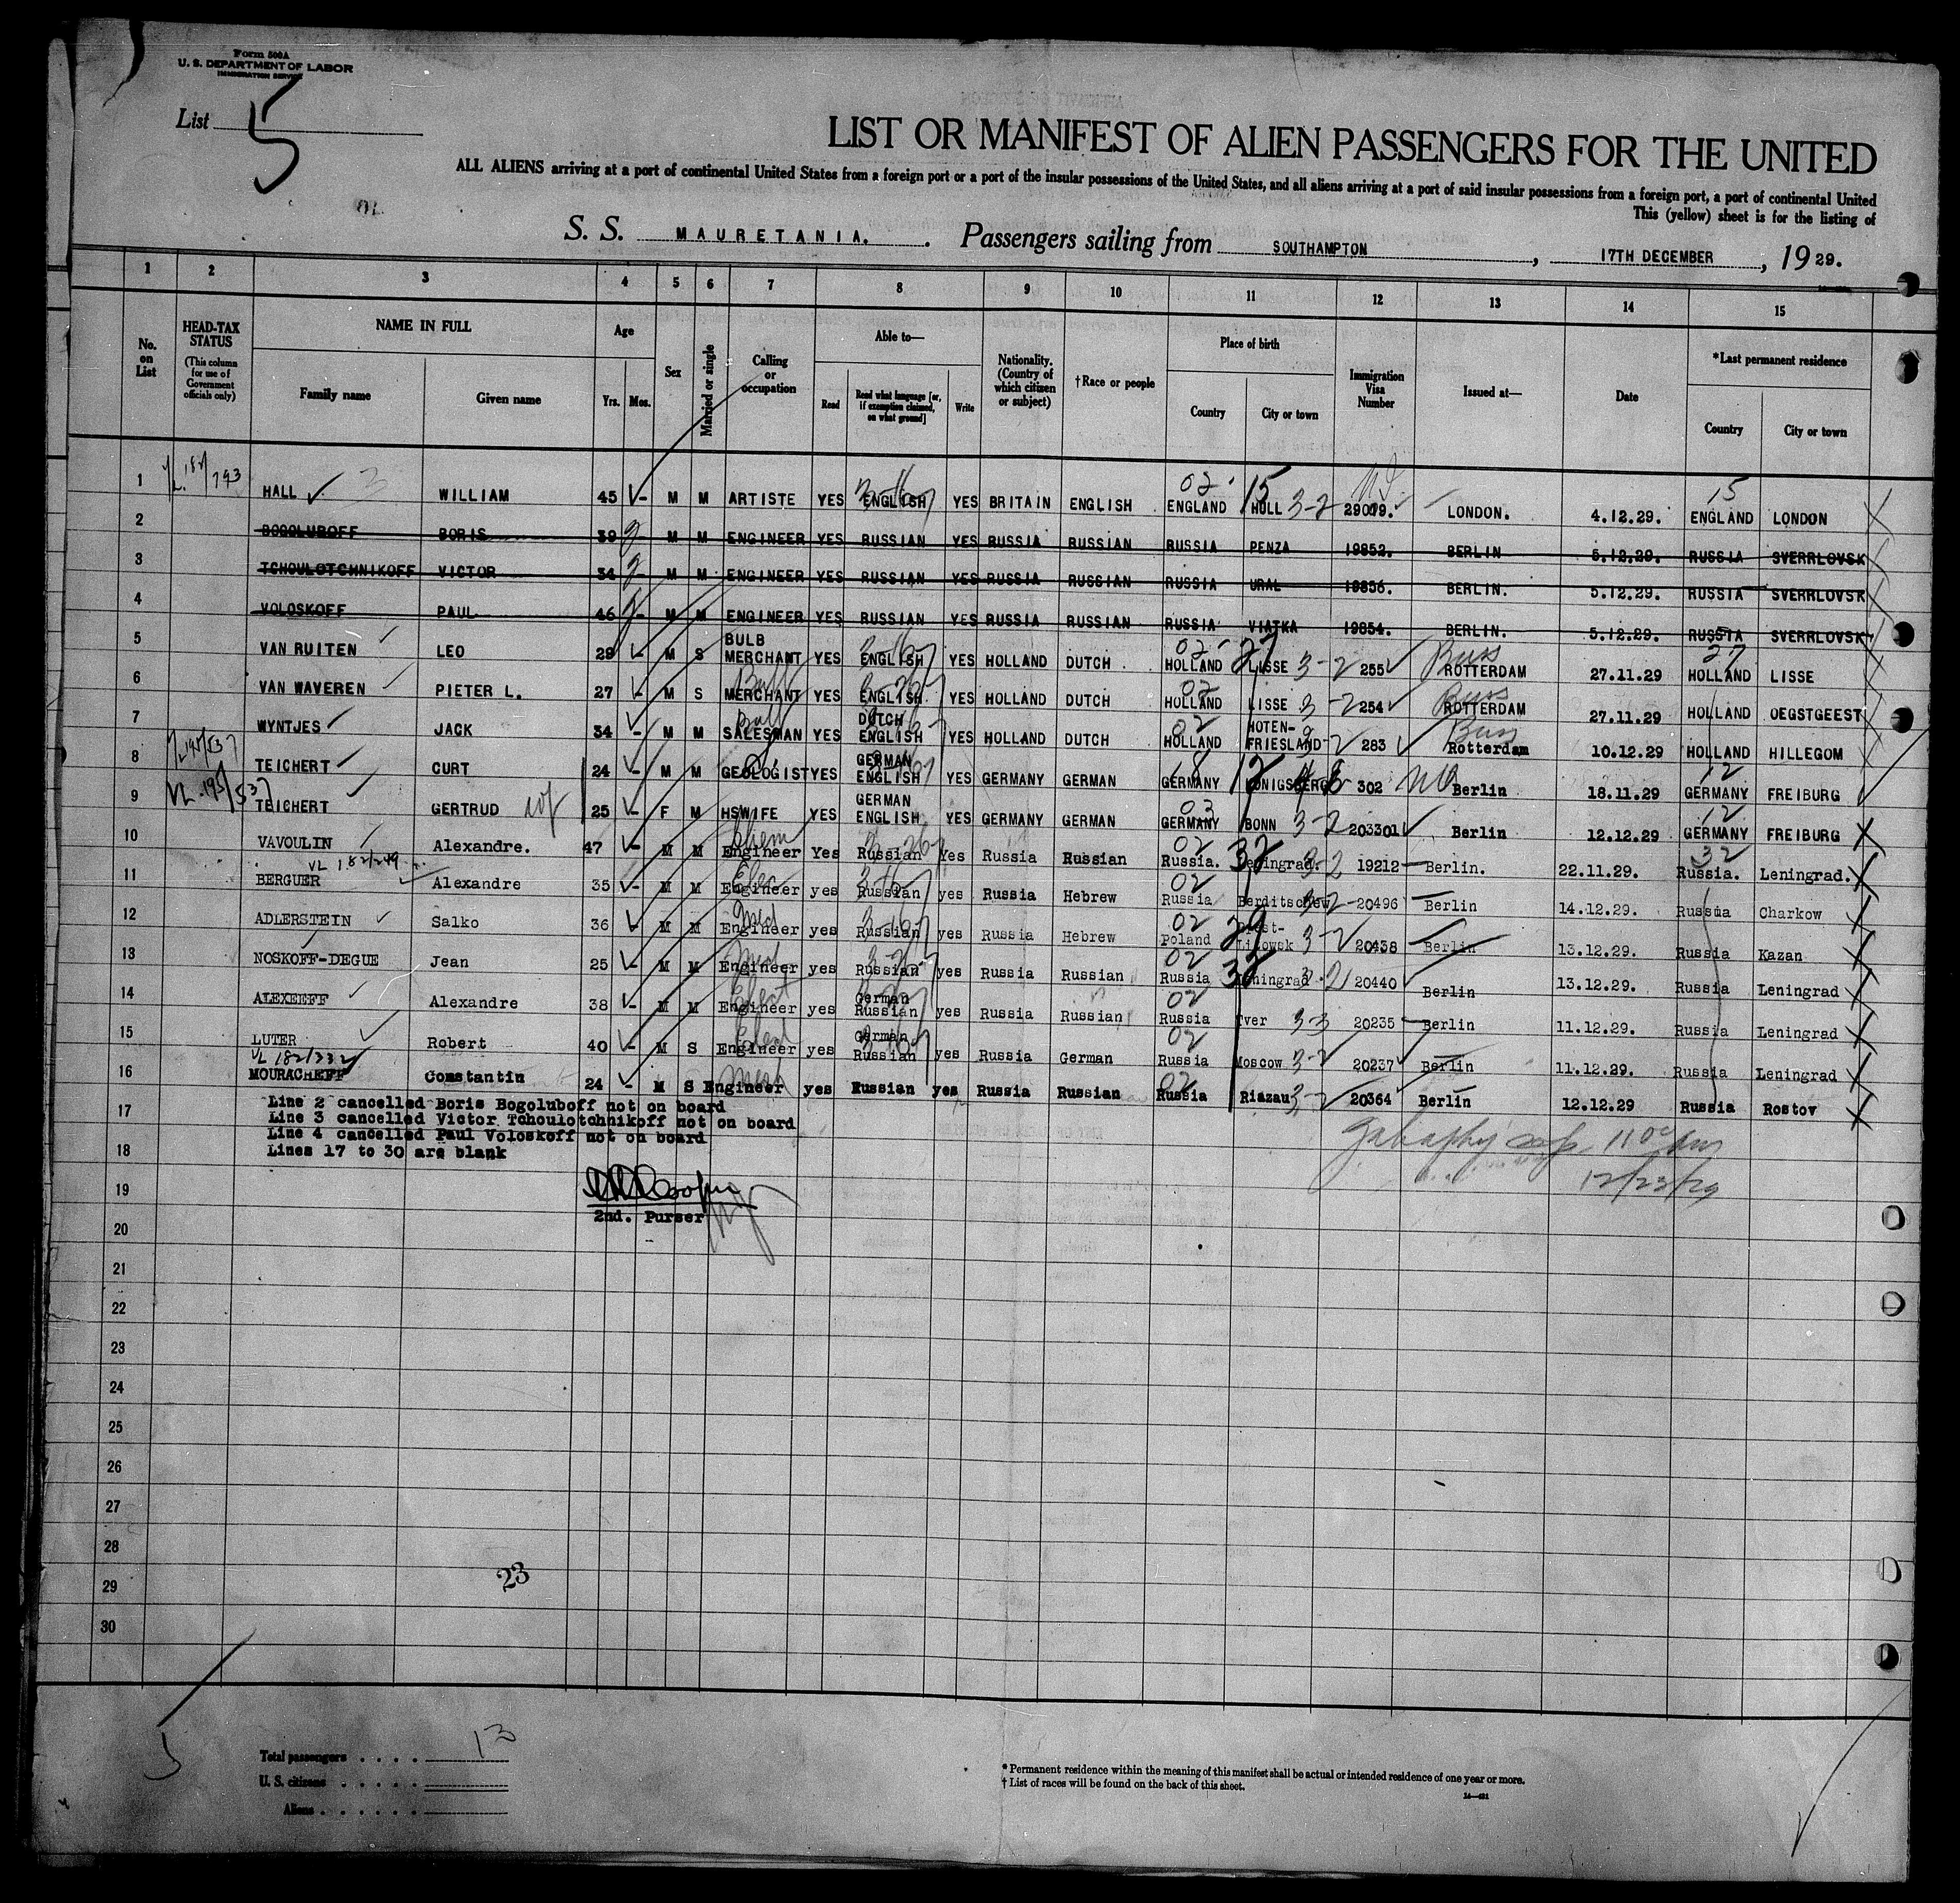 Form 500A
U. S. DEPARTMENT OF LABOR
IMMIGRATION SERVICE
List 5
LIST OR MANIFEST OF ALIEN PASSENGERS FOR THE UNITED
ALL ALIENS arriving at a port of continental United States from a foreign port or a port of the insular possessions of the United States, and all aliens arriving at a port of said insular possessions from a foreign port, a port of continental United
This (yellow) sheet is for the listing of
S. S. MAURETANIA. Passengers sailing from SOUTHAMPTON, 17TH DECEMBER, 1929.
1 2 3 4 5 6 7 8 9 10 11 12 13 14 15
No. on List
HEAD-TAX STATUS
(This column for use of Government officials only)
NAME IN FULL
Family name Given name
Age
Yrs. Mos.
Sex
Married or single
Calling or occupation
Able to—
Read Read what language [or, if exemption claimed, on what ground] Write
Nationality. (Country of which citizen or subject)
†Race or people
Place of birth
Country City or town
Immigration Visa Number
Issued at—
Date
*Last permanent residence
Country City or town
1 HALL WILLIAM 45 - M M ARTISTE YES ENGLISH YES BRITAIN ENGLISH 02 ENGLAND 15 HULL 3-2 29079. LONDON. 4.12.29. 15 ENGLAND LONDON
2 BOGOLUBOFF BORIS 39 - M M ENGINEER YES RUSSIAN YES RUSSIA RUSSIAN RUSSIA PENZA 19852. BERLIN 5.12.29. RUSSIA SVERRLOVSK
3 TCHOULOTCHNIKOFF VICTOR 34 - M M ENGINEER YES RUSSIAN YES RUSSIA RUSSIAN RUSSIA URAL 19856. BERLIN. 5.12.29. RUSSIA SVERRLOVSK
4 VOLOSKOFF PAUL 46 - M M ENGINEER YES RUSSIAN YES RUSSIA RUSSIAN RUSSIA VIATKA 19854. BERLIN. 5.12.29. RUSSIA SVERRLOVSK
5 VAN RUITEN LEO 29 - M S BULB MERCHANT YES ENGLISH YES HOLLAND DUTCH 02 HOLLAND 27 LISSE 3-2 255 Buss ROTTERDAM 27.11.29 27 HOLLAND LISSE
6 VAN WAVEREN PIETER L. 27 - M S Bulb MERCHANT YES ENGLISH YES HOLLAND DUTCH 02 HOLLAND LISSE 3-2 254 Buss ROTTERDAM 27.11.29 HOLLAND OEGSTGEEST
7 WYNTJES JACK 34 - M M Bulb SALESMAN YES DUTCH ENGLISH YES HOLLAND DUTCH 02 HOLLAND HOTEN-FRIESLAND 283 Buss Rotterdam 10.12.29 HOLLAND HILLEGOM
8 TEICHERT CURT 24 - M M GEOLOGIST YES GERMAN ENGLISH YES GERMANY GERMAN GERMANY 12 KONIGSBERG 302 Berlin 18.11.29 12 GERMANY FREIBURG
9 TEICHERT GERTRUD 25 - F M HSWIFE YES GERMAN ENGLISH YES GERMANY GERMAN 02 GERMANY BONN 3-2 203301 Berlin 12.12.29 12 GERMANY FREIBURG
10 VAVOULIN Alexandre. 47 - M M Chem Engineer Yes Russian Yes Russia Russian 02 Russia. 32 Leningrad. 3-2 19212 Berlin. 22.11.29. 32 Russia. Leningrad.
11 BERGUER Alexandre 35 - M M Elec Engineer yes Russian yes Russia Hebrew 02 Russia Berditschew 3-2 20496 Berlin 14.12.29. Russia Charkow
12 ADLERSTEIN Salko 36 - M M Med Engineer yes Russian yes Russia Hebrew 02 Poland 29 Brest-Litowsk 3-2 20438 Berlin 13.12.29. Russia Kazan
13 NOSKOFF-DEGUE Jean 25 - M M Engineer yes Russian yes Russia Russian 02 Russia 32 Leningrad 20440 Berlin 13.12.29. Russia Leningrad
14 ALEXEEFF Alexandre 38 - M M Elect Engineer yes German Russian yes Russia Russian 02 Russia Tver 3-3 20235 Berlin 11.12.29. Russia Leningrad
15 LUTER Robert 40 - M S Engineer yes German Russian yes Russia German 02 Russia Moscow 3-2 20237 Berlin 11.12.29. Russia Leningrad
16 MOURACHEFF Constantin 24 - M S Engineer yes Russian yes Russia Russian 02 Russia Riazau 3-2 20364 Berlin 12.12.29 Russia Rostov
17 Line 2 cancelled Boris Bogoluboff not on board
Line 3 cancelled Victor Tchoulotchnikoff not on board
Line 4 cancelled Paul Voloskoff not on board
18 Lines 17 to 30 are blank
12/23/29
19
2nd. Purser
20
21
22
23
24
25
26
27
28
29
23
30
5
Total passengers . . . . 13
U. S. citizens . . . . .
Aliens . . . . . . .
* Permanent residence within the meaning of this manifest shall be actual or intended residence of one year or more.
† List of races will be found on the back of this sheet.